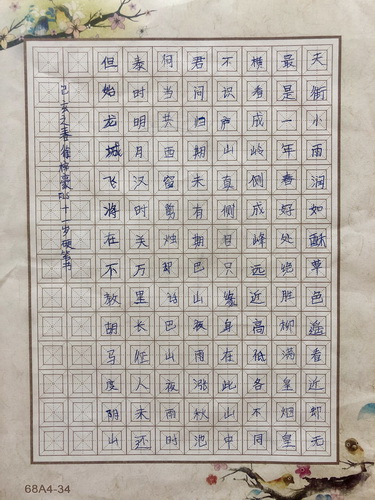 天街小雨润如酥草色遥看近却无
最是一年春好处绝胜柳满皇烟皇
横看成岭侧成峰远近高低各不同
不识庐山真侧目只缘身在此山中
君问归期未有期巴山夜雨涨秋池
何当共西窗剪烛却话巴山夜雨时
秦时明月汉时关万里长征人未还
但始龙城飞将在不教胡马度阴山
己亥之春崔梓豪十一岁硬笔书
68A4-34